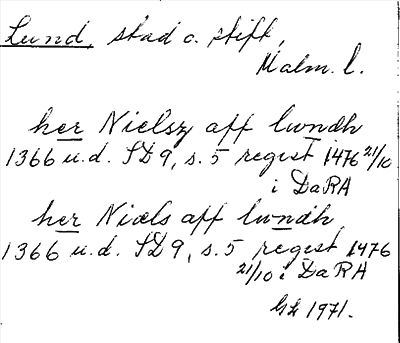 Lund, stad o. stift,
Malm. l.
her Nielsz aff lwndh
1366 u.d. SD9, s.5 regist 1476 21/10
i DaRA
her Niæls aff lwndh
1366 u.d. SD9, s.5 regest 1476
21/10 i DaRA
1971.